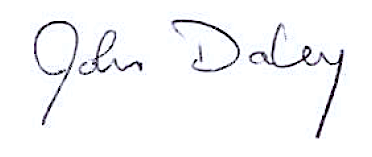 John Daley